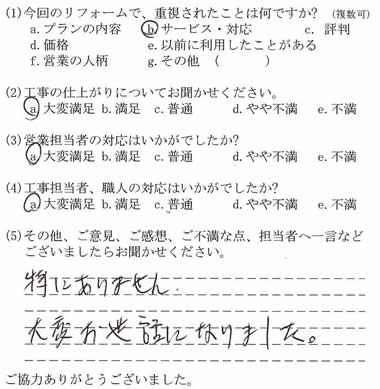 (1)今回のリフォームで、重視されたことは何ですか? (複数可)
a.プランの内容 b.サービス・対応 c. 評判
d.価格 e.以前に利用したことがある
f.営業の人柄 g.その他 ( )
(2)工事の仕上がりについてお聞かせください。
a.大変満足 b.満足 c.普通 d.やや不満 e.不満
(3)営業担当者の対応はいかがでしたか?
a.大変満足 b.満足 c.普通 d.やや不満 e.不満
(4)工事担当者、職人の対応はいかがでしたか?
a.大変満足 b.満足 c.普通 d.やや不満 e.不満
(5)その他、ご意見、ご感想、ご不満な点、担当者へ一言など
ございましたらお聞かせください。
特にありません.
大変お世話になりました。
ご協力ありがとうございました。